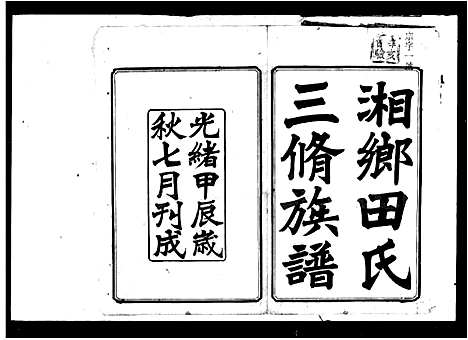 湘鄉田氏
三脩族譜
光緒甲辰歲
秋七月刊成